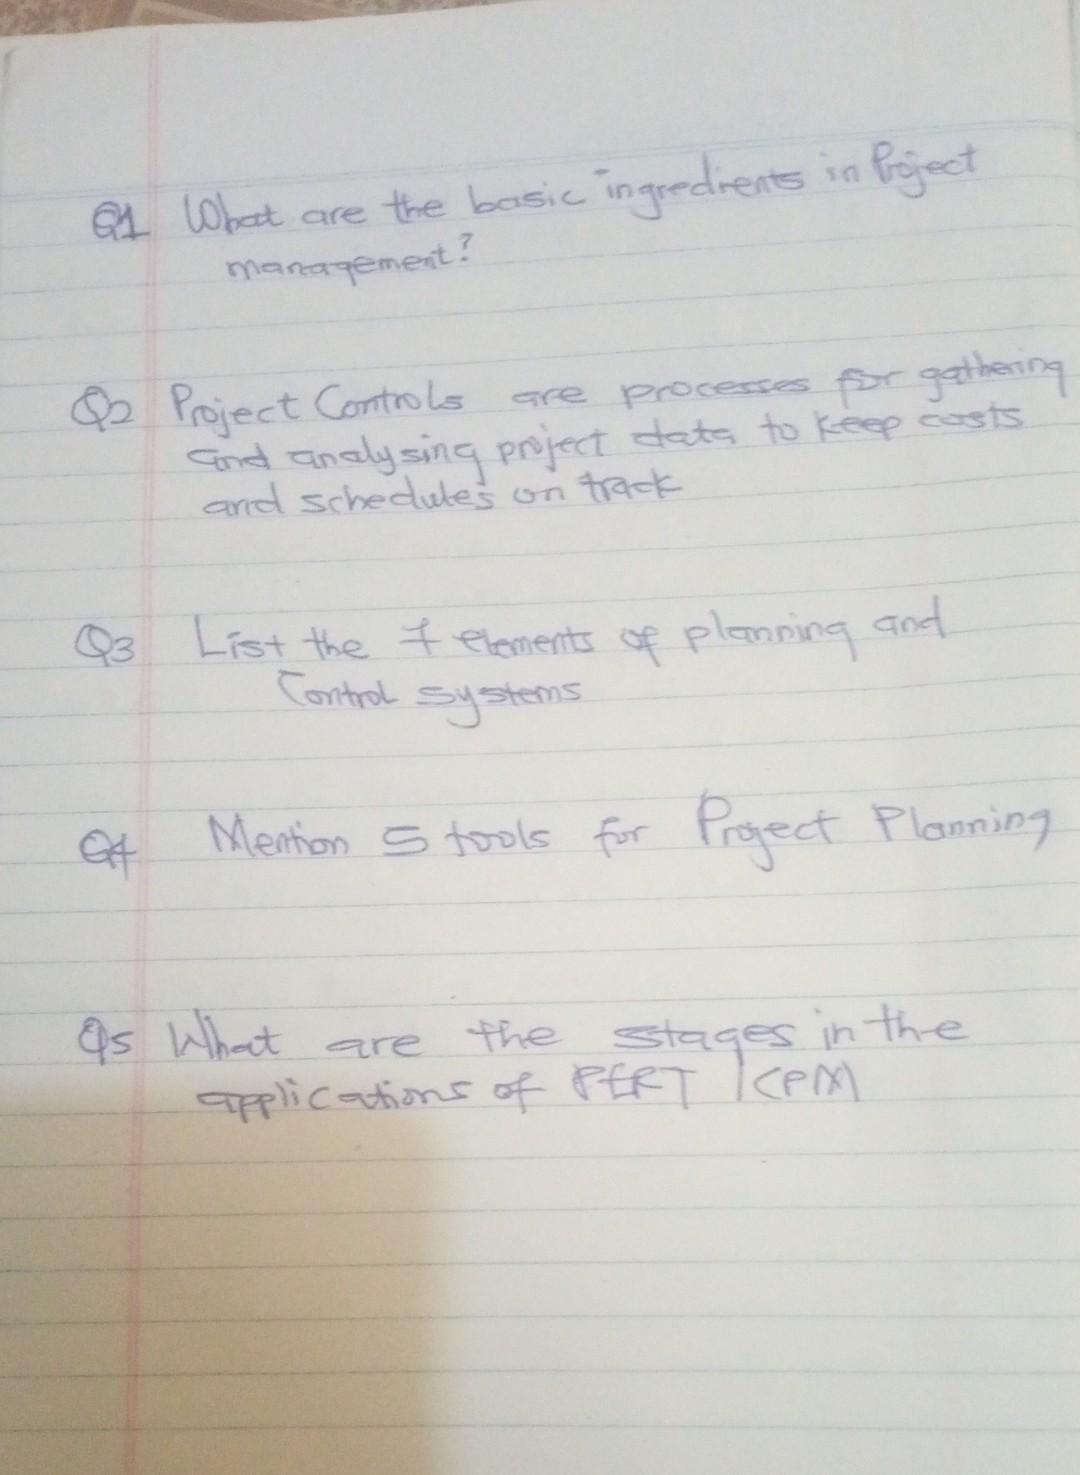 Q1 What are the basic ingredients in Project
management?
Q2 Project Controls are processes for gathering
and analysing project data to keep costs
and schedules on track
Q3 List the 7 elements of planning and
Control systems
Q4 Mention 5 tools for Project Planning
Q5 What are the stages in the
applications of PERT / CPM